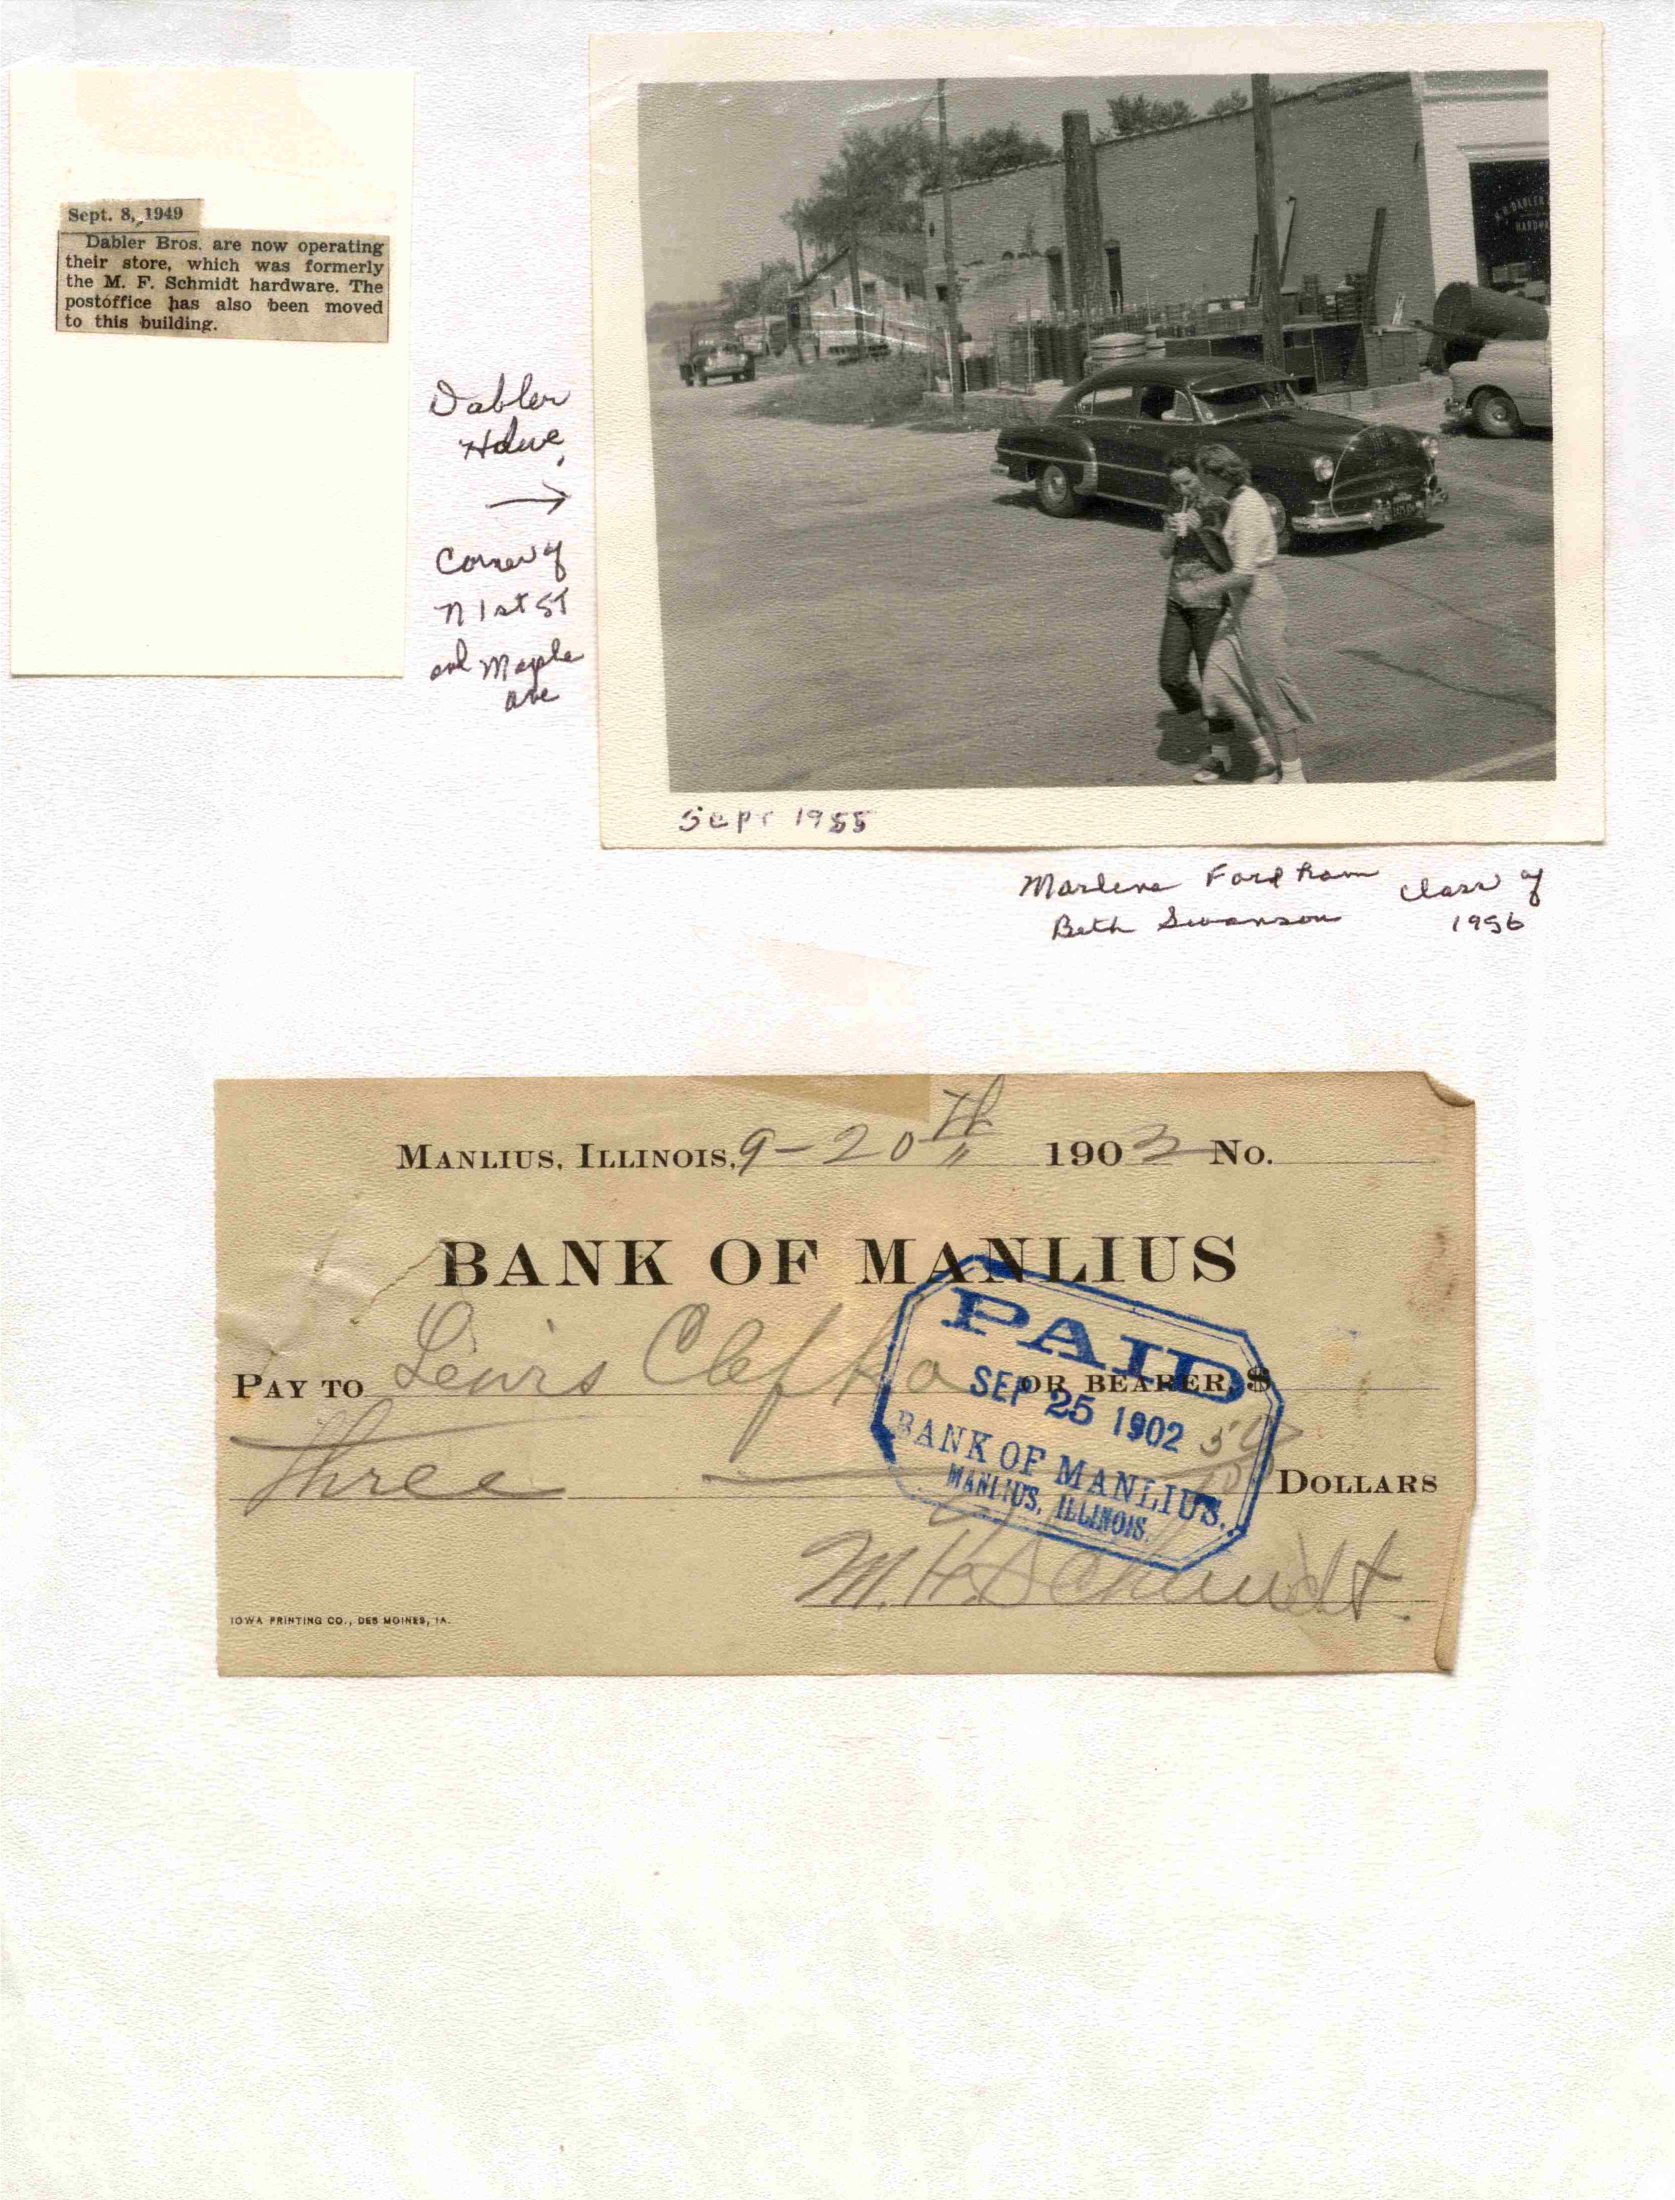 Sept. 8, 1949
Dabler Bros. are now operating
their store, which was formerly
the M. F. Schmidt hardware. The
postoffice has also been moved
to this building.
Dabler
Hdwe,
→
Corner of
N 1st ST
and Maple
Ave
DABLER
HARDWA
Sept 1955
Marlene Fordham
Beth Swanson
Class of
1956
MANLIUS, ILLINOIS, 9-20th 1902 No.
BANK OF MANLIUS
PAY TO Lewis OR BEARER, $
Three 50/100 DOLLARS
PAID
SEP 25 1902
BANK OF MANLIUS.
MANLIUS, ILLINOIS.
Schmidt.
IOWA PRINTING CO., DES MOINES, IA.